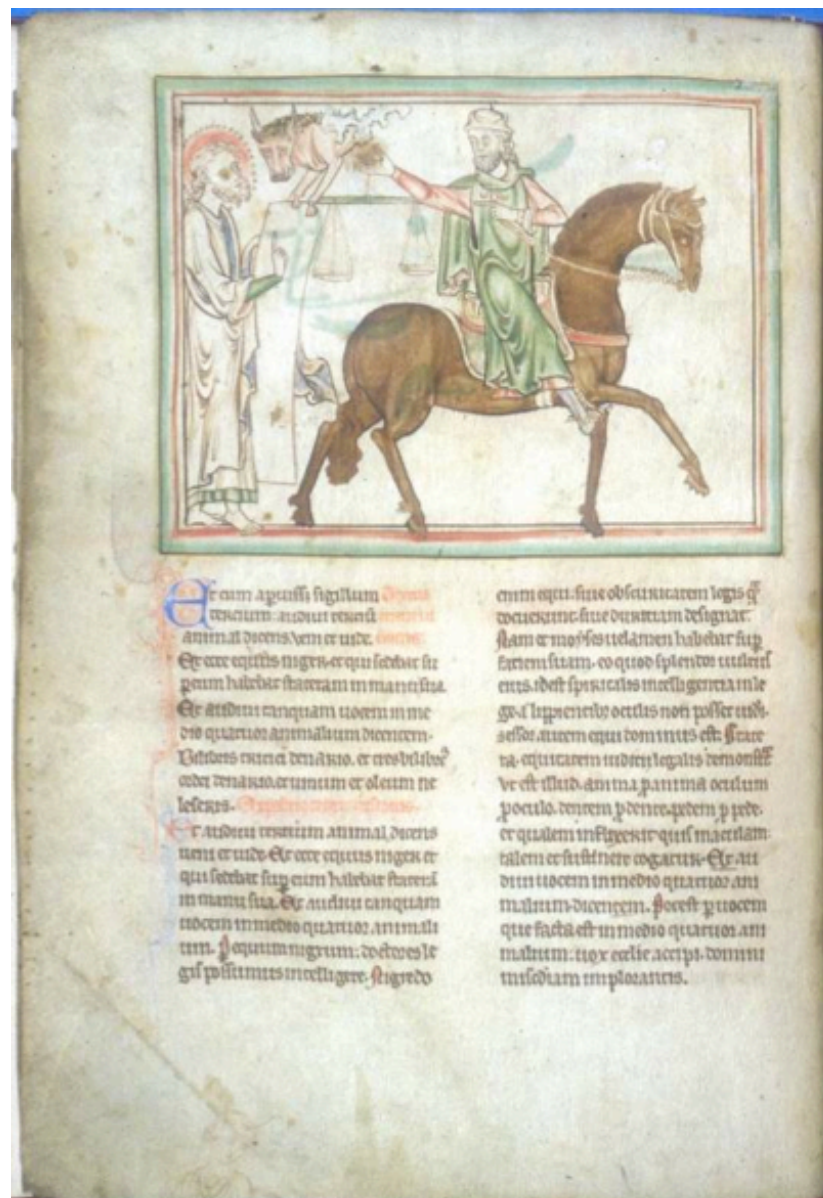 Et cum apuissi sigillum
tercium: audiui terciũ
animal dicens. veni et uide.
Et ecce equus niger. et qui sedebat su
per eum habebat stateram in manu sua.
Et audiui tanquam uocem in me
dio quatuor animalium dicentem.
Bilibris tritici denario. et tres bilibres
ordei denario. et uinum et oleum ne
leseris.
Et audiui tercium animal dicens
ueni et uide. Et ecce equus niger et
qui sedebat sup eum habebat staterã
in manu sua. Et audiui tanquam
uocem in medio quatuor animali
um. P equum nigrum: doctores le
gis possumus intelligere. Nigredo
enim equi. siue obscuritatem legis quã
docuerunt. siue duritiam designat.
Nam et moyses uelamen habebat sup
faciem suam. eo quod splendor uultus
eius. idest spiritalis intelligentia in le
ge. a lippientibꝰ oculis non posset uidi.
sessor autem equi dominus est. State
ra. equitatem iudicii legalis demonstrat
Vt est illud. animã p anima oculum
p oculo. dentem p dente. pedem p pede.
et qualem inflixerit quis maculam.
talem et sustinere cogatur. Et au
diui uocem in medio quatuor ani
malium. dicentem. Potest p uocem
que facta est in medio quatuor ani
malium: uox ecclie accipi. domini
misediam implorantis.